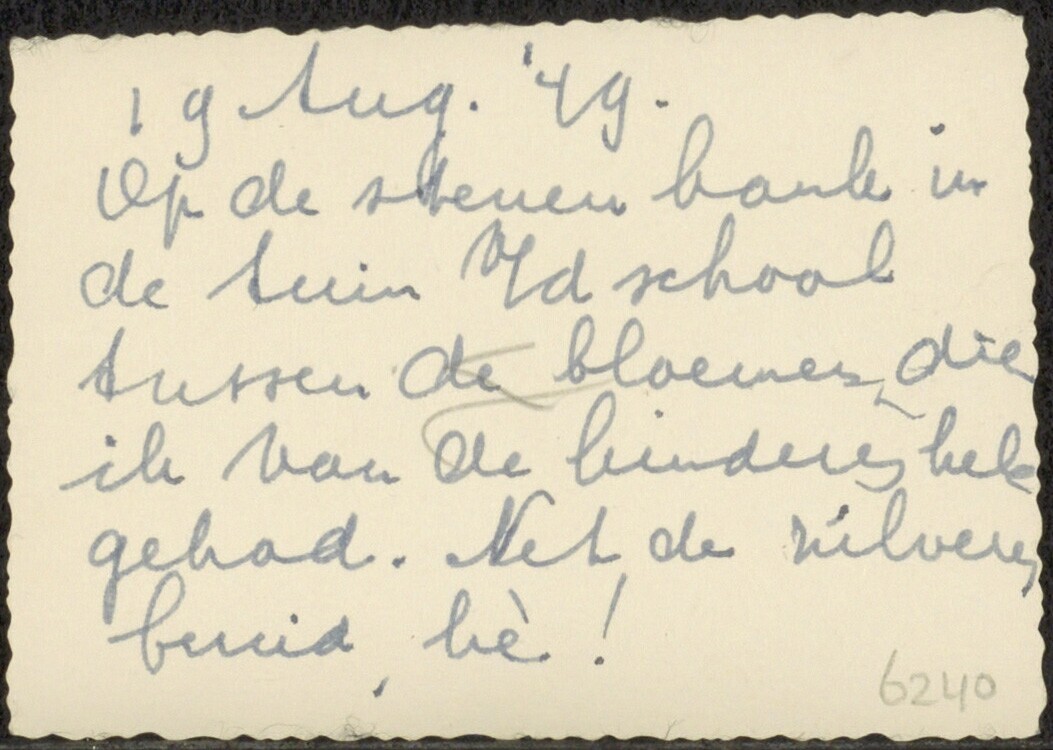 19 Aug. '49.
Op de stenen bank in
de tuin v/d school
tussen de bloemen, die
ik van de kinderen heb
gehad. Net de zilveren
bruid, hè!
6240